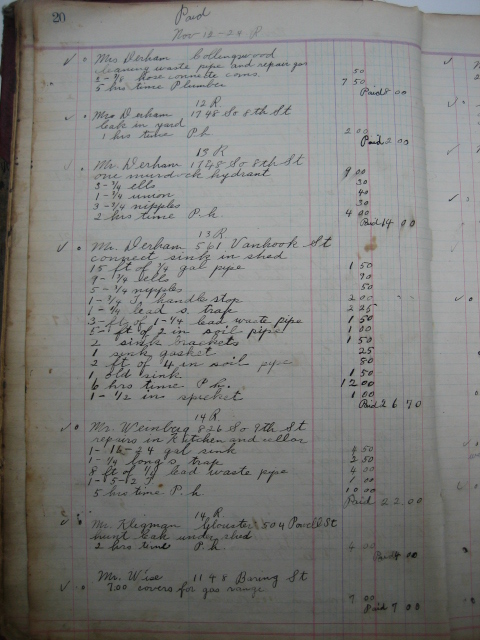 20
Paid
Nov 12-29 R
Mrs Derham Collingswood
cleaning waste pipe and repair gas
hose conns. 50
5 hrs time Plumber 7 50
Paid 8 00
12 R
Mrs Derham 1748 So 8th St
leak in yard
1 hrs time P.h 2 00
Paid 2 00
13 R
Mr. Derham 1748 So 8th St
one murdock hydrant 9 00
3-3/4 ells 30
1-3/4 union 40
3-3/4 nipples 30
2 hrs time P.h. 4 00
Paid 14 00
13 R
Mr. Derham 561 Vanhook St
connect sink in shed
15 ft of 3/4 gal pipe 1 50
9-3/4 ells 90
5-3/4 nipples 50
1-3/4 T handle stop 2 00
1-1/4 lead s. trap 2 25
3-ft of 1-1/4 lead waste pipe 1 50
5-ft of 2 in soil pipe 1 00
2 sink brackets 1 50
1 sink gasket 25
2 ft of 4 in soil pipe 80
1 old sink 1 50
6 hrs time P.h. 12 00
1-1/2 in spicket 1 00
Paid 26 70
14 R
Mr. Weinberg 826 So 9th St
repairs in kitchen and cellar
1-16-24 gal sink 4 50
1-1/4 long s. trap 2 50
8 ft of lead waste pipe 4 00
1 00
5 hrs time P.h 10 00
Paid 22 00
14 R.
Mr. Kligman Gloucster 504 Powell St
hunt leak under shed
2 hrs time P.h. 4 00
Paid 4 00
Mr. Wise 1148 Baring St
700 covers for gas range 7 00
Paid 7 00